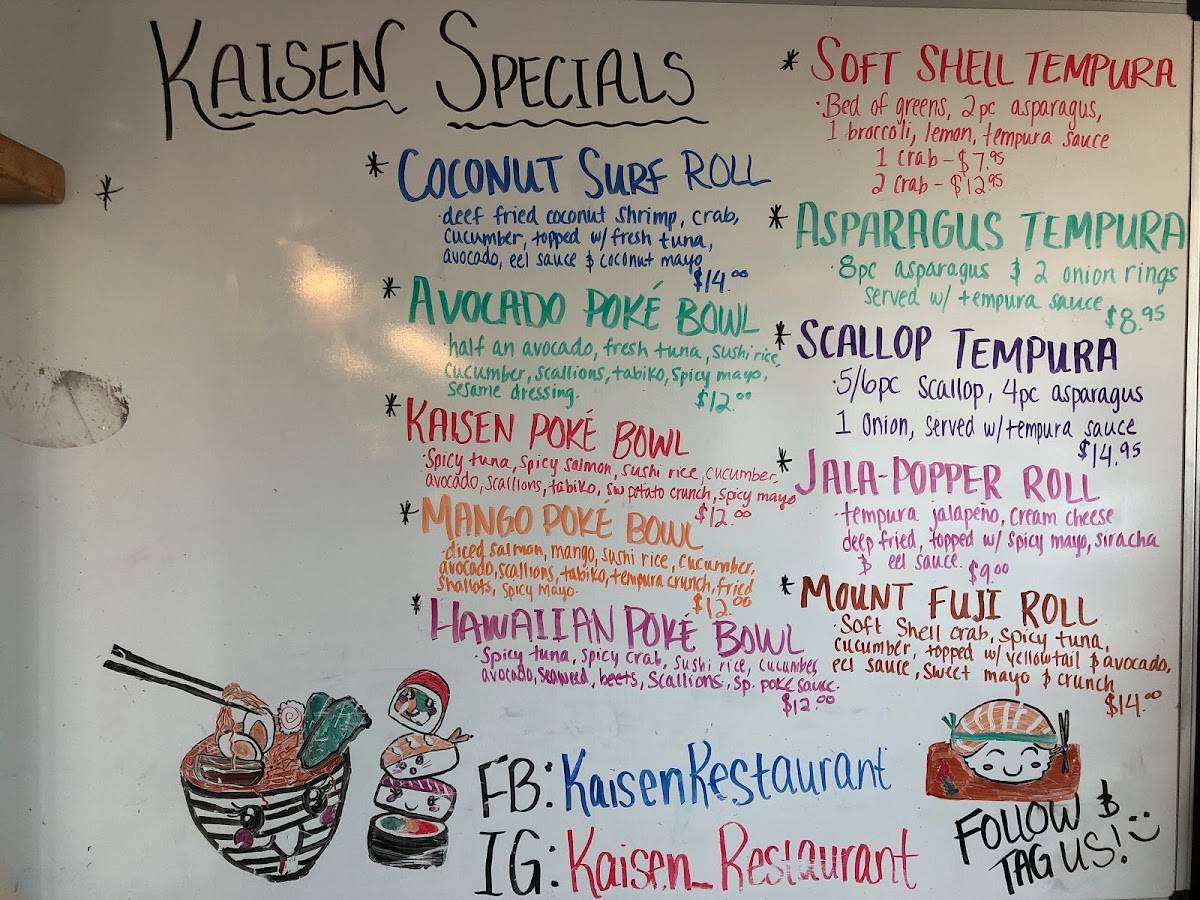 KAISEN SPECIALS
*
* COCONUT SURF ROLL
·deef fried coconut shrimp, crab,
cucumber, topped w/ fresh tuna,
avocado, eel sauce & coconut mayo
$14.00
* AVOCADO POKÉ BOWL
·half an avocado, fresh tuna, sushi rice,
cucumber, scallions, tabiko, spicy mayo,
sesame dressing. $12.00
* KAISEN POKÉ BOWL
·Spicy tuna, spicy salmon, sushi rice, cucumber,
avocado, scallions, tabiko, sw potato crunch, spicy mayo
$12.00
* MANGO POKÉ BOWL
·diced salmon, mango, sushi rice, cucumber,
avocado, scallions, tabiko, tempura crunch, fried
shallots, spicy mayo. $12.00
* HAWAIIAN POKÉ BOWL
·Spicy tuna, spicy crab, sushi rice, cucumber,
avocado, seaweed, beets, scallions, sp. poke sauce.
$12.00
* SOFT SHELL TEMPURA
·Bed of greens, 2pc asparagus,
1 broccoli, lemon, tempura sauce
1 crab - $7.95
2 crab - $12.95
* ASPARAGUS TEMPURA
·8pc asparagus & 2 onion rings
served w/ tempura sauce $8.95
* SCALLOP TEMPURA
·5/6pc scallop, 4pc asparagus
1 onion, served w/ tempura sauce
$14.95
* JALA-POPPER ROLL
·tempura jalapeño, cream cheese
deep fried, topped w/ spicy mayo, siracha
& eel sauce. $9.00
* MOUNT FUJI ROLL
·Soft Shell crab, spicy tuna,
cucumber, topped w/ yellowtail & avocado,
eel sauce, sweet mayo & crunch
$14.00
FB: KaisenRestaurant
IG: Kaisen_Restaurant
FOLLOW &
TAG US! :)